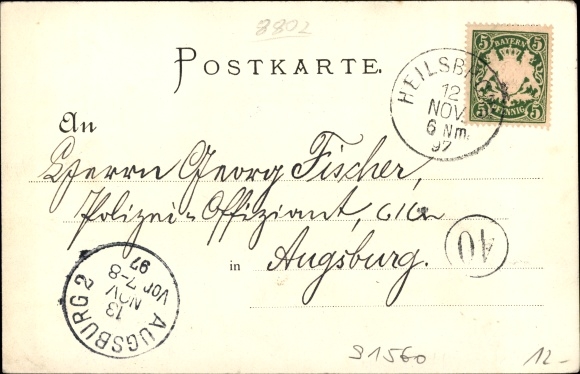 8802
POSTKARTE.
5 BAYERN 5
5 PFENNIG 5
HEILSBR
12
NOV.
6 Nm.
97
An
Herrn Georg Fischer,
Polizei-Offiziant,
in Augsburg.
AUGSBURG 2
13
NOV
Vor 7-8
97
91560
12-